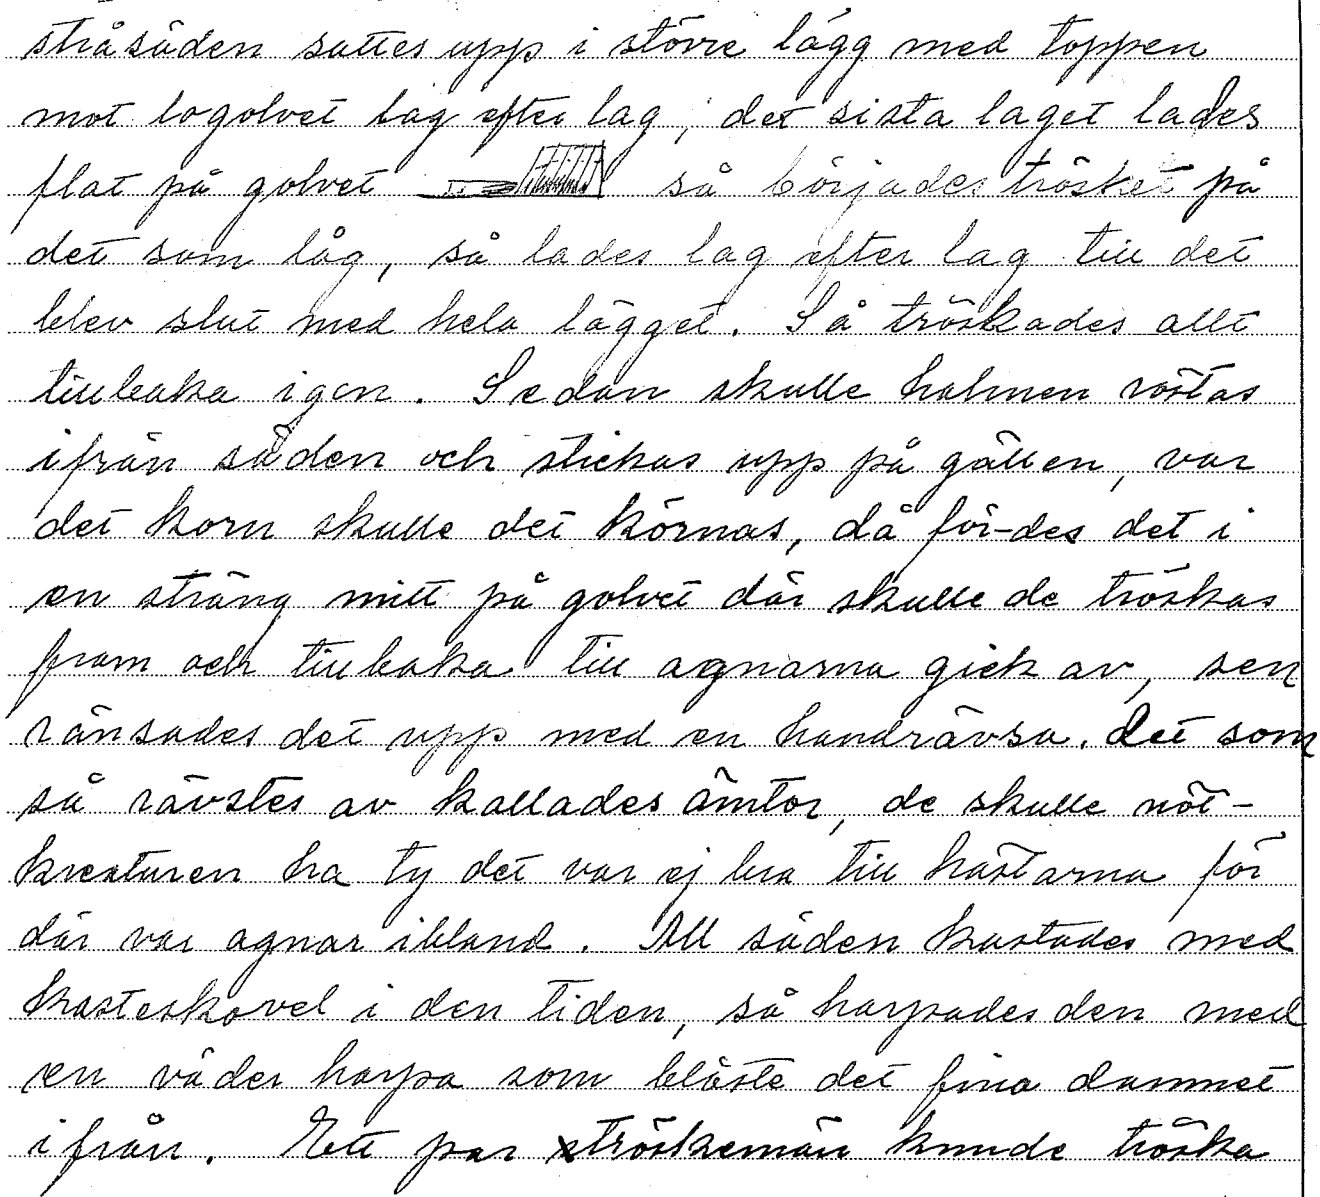 stråsäden sattes upp i större lägg med toppen
mot logolvet lag efter lag, det sista laget lades
flat på golvet så börjades trösket på
det som låg, så lades lag efter lag till det
blev slut med hela lägget. Så tröskades allt
tillbaka igen. Sedan skulle halmen röstas
ifrån säden och stickas upp på gällen, var
det korn skulle det körnas, då för-des det i
en sträng mitt på golvet där skulle de tröskas
fram och tillbaka till agnarna gick av, sen
ränsades det upp med en handrävsa. det som
så rävstes av kallades ämtor, de skulle nöt-
kreaturen ha ty det var ej bra till hästarna för
där var agnar ibland. All säden kastades med
kasteskovel i den tiden, så harpades den med
en väder harpa som blåste det fina dammet
ifrån. Ett par tröskemän kunde tröska